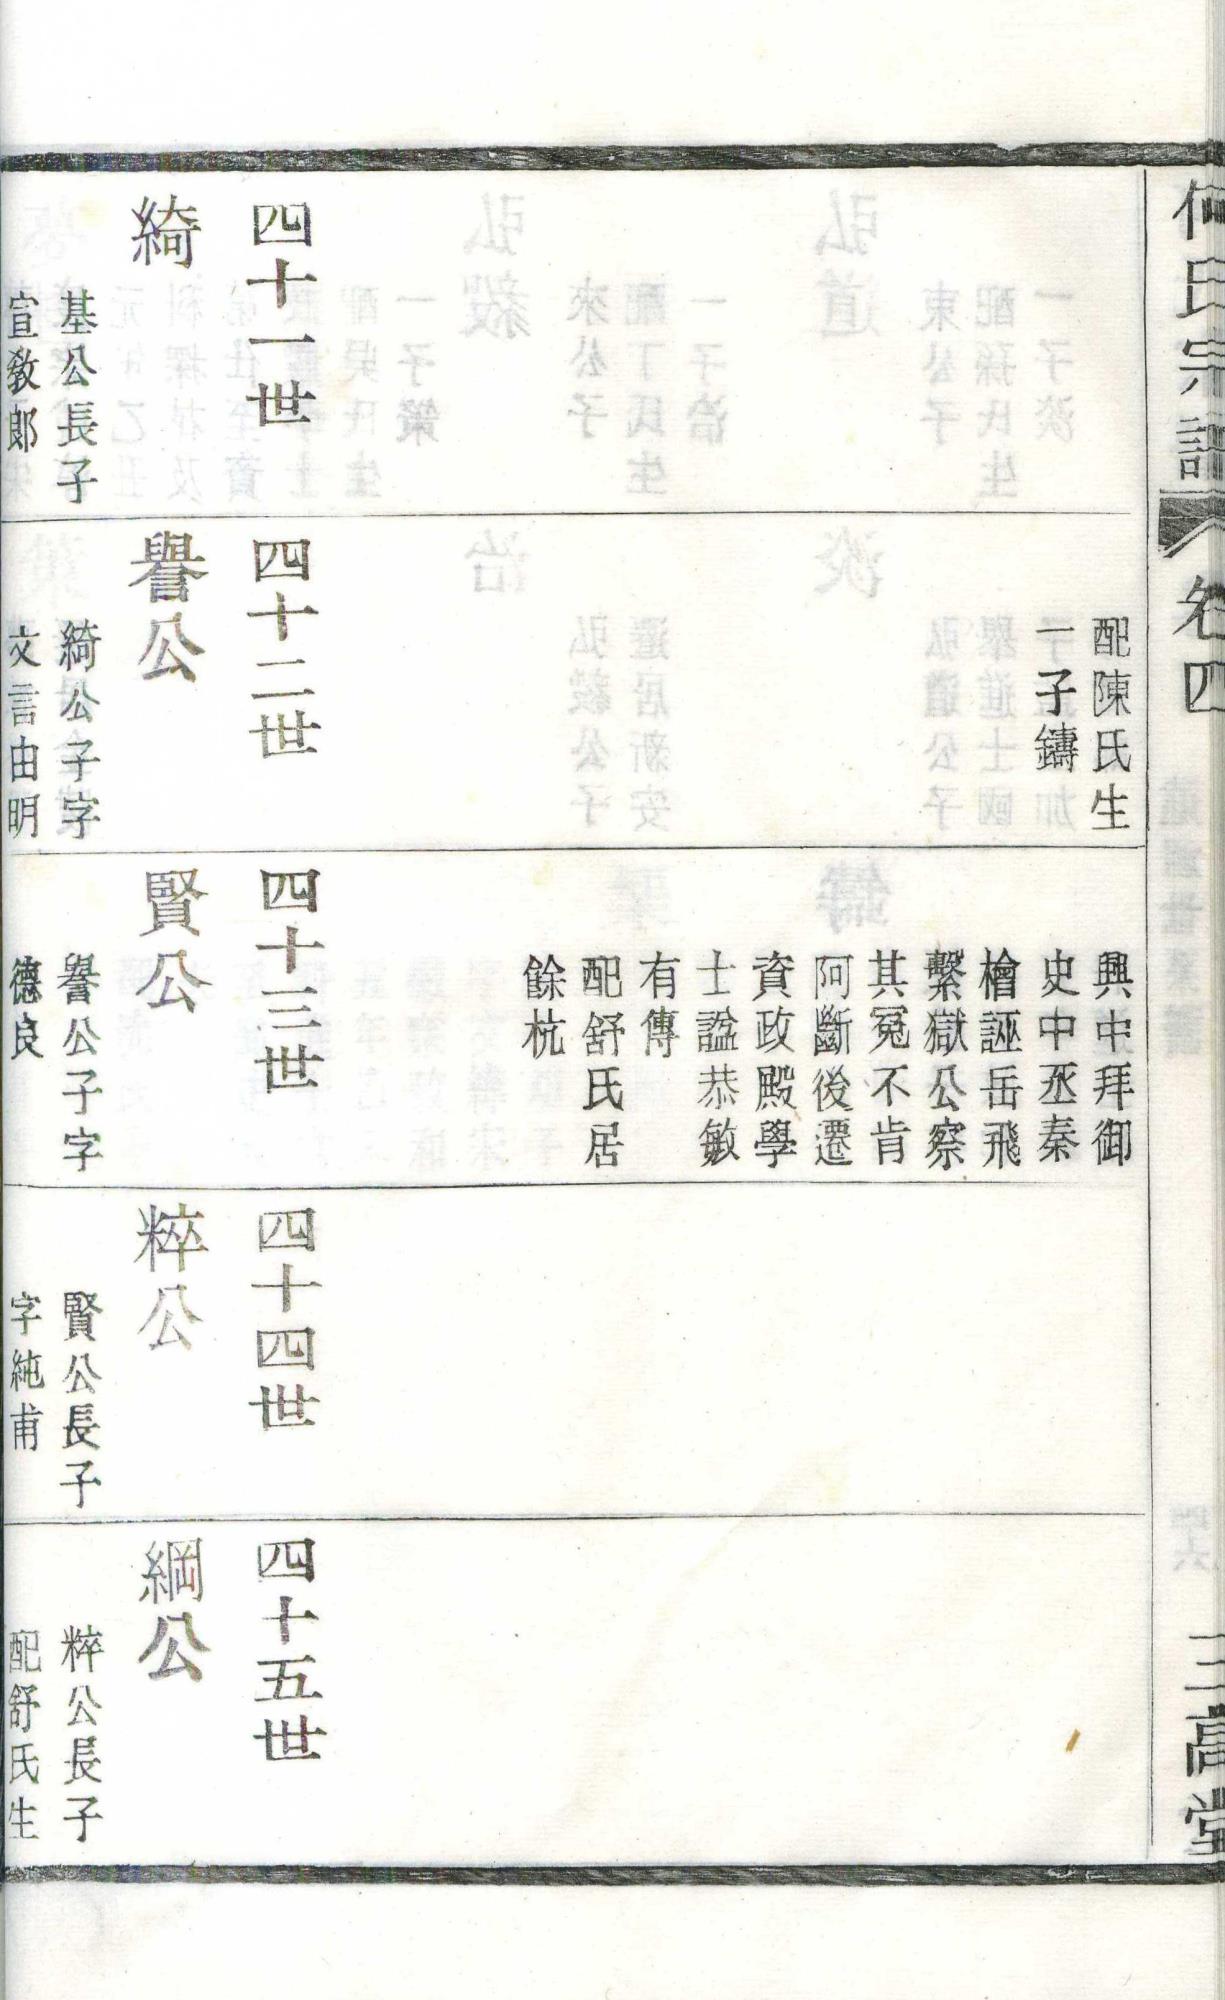 何氏宗譜
卷四
三高堂
四十一世
綺
基公長子
宣教郎
配陳氏生
一子鑄
四十二世
譽公
綺公子字
文言由明
興中拜御
史中丞秦
檜誣岳飛
繫獄公察
其冤不肯
阿斷後遷
資政殿學
士謚恭敏
有傳
配舒氏居
餘杭
四十三世
賢公
譽公子字
德良
四十四世
粹公
賢公長子
字純甫
四十五世
綱公
粹公長子
配舒氏生